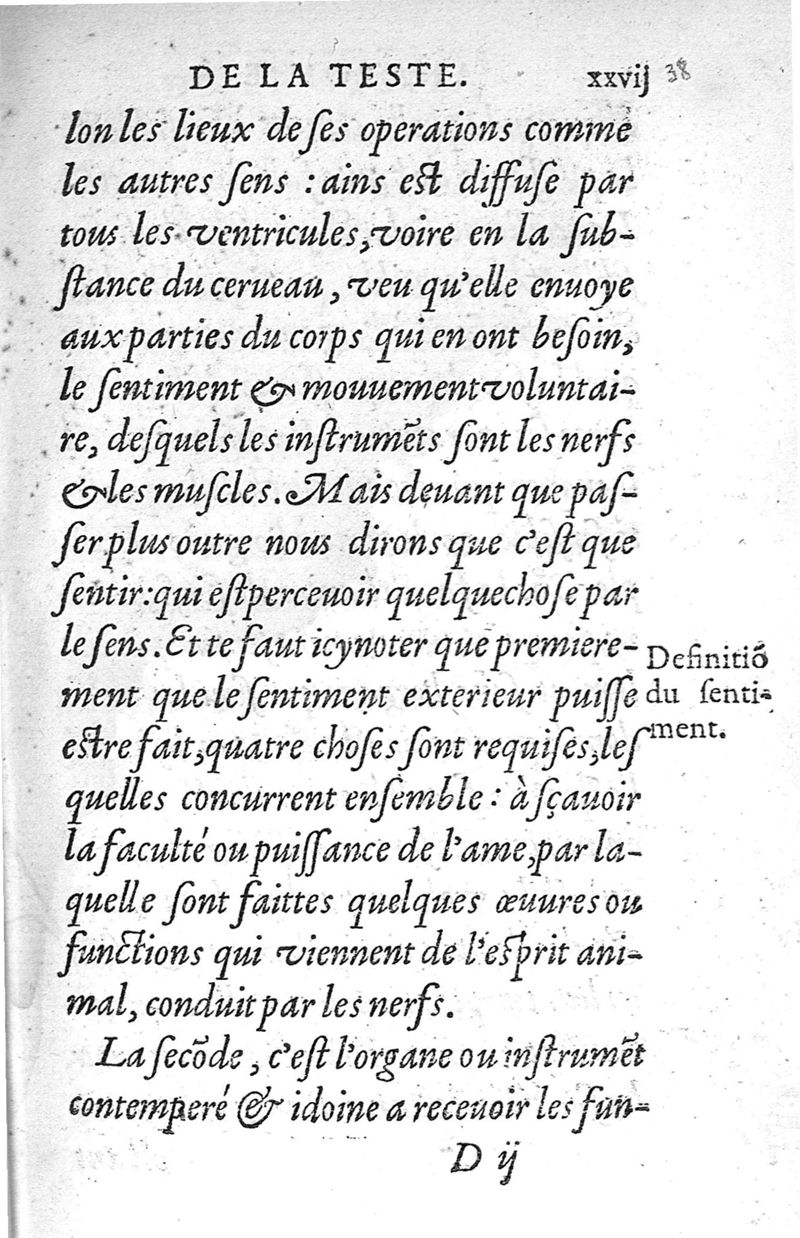 DE LA TESTE. xxvij 38
lon les lieux de ſes operations comme
les autres ſens : ains eſt diffuſe par
tous les ventricules, voire en la ſub-
ſtance du cerueau, veu qu'elle enuoye
aux parties du corps qui en ont beſoin,
le ſentiment & mouuement voluntai-
re, deſquels les inſtrumẽts ſont les nerfs
& les muſcles. Mais deuant que paſ-
ſer plus outre nous dirons que c'eſt que
ſentir: qui eſt perceuoir quelque choſe par
le ſens. Et te faut icy noter que premiere-
ment que le ſentiment exterieur puiſſe
eſtre fait, quatre choſes ſont requiſes, leſ
quelles concurrent enſemble : à ſçauoir
la faculté ou puiſſance de l'ame, par la-
quelle ſont faittes quelques œuures ou
functions qui viennent de l'eſprit ani-
mal, conduit par les nerfs.
La ſecõde, c'eſt l'organe ou inſtrumẽt
contemperé & idoine a receuoir les fun-
D ij
Definitiõ
du ſenti-
ment.